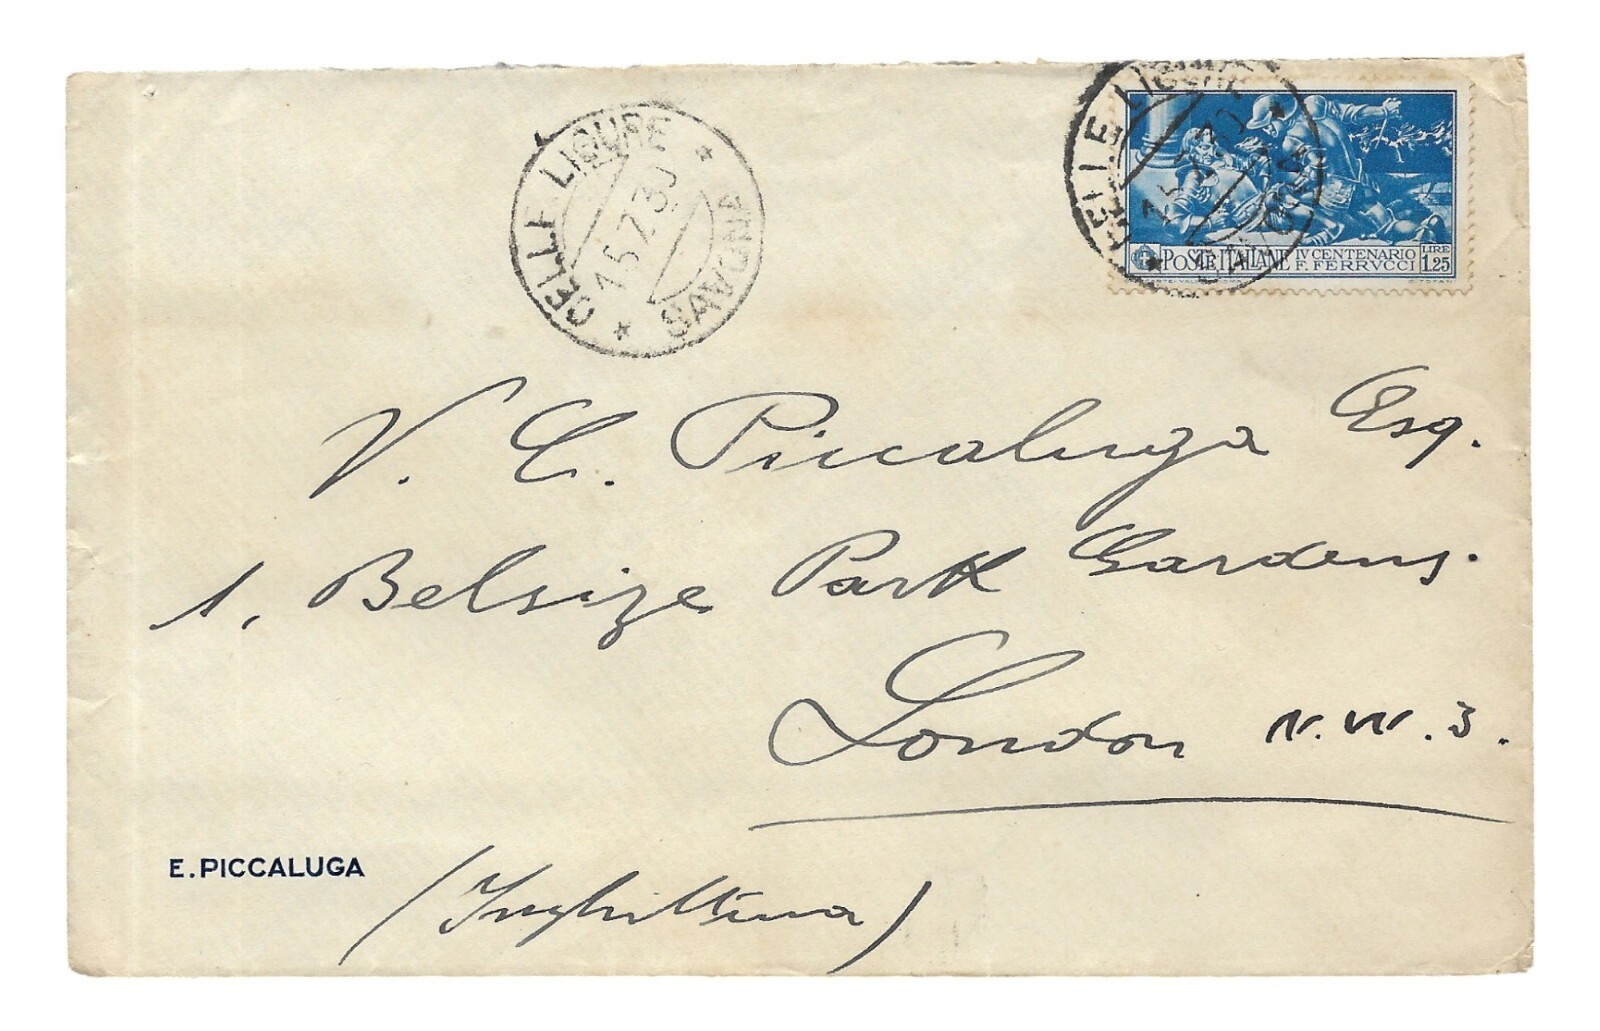 CELLE LIGURE
15.7.30
SAVONA
CELLE LIGURE
15.7.30
SAVONA
POSTE ITALIANE IV CENTENARIO F. FERRVCCI LIRE 1.25
V. C. Piccaluga Esq.
1, Belsize Park Gardens.
London N.W.3.
E. PICCALUGA
(Inghilterra)